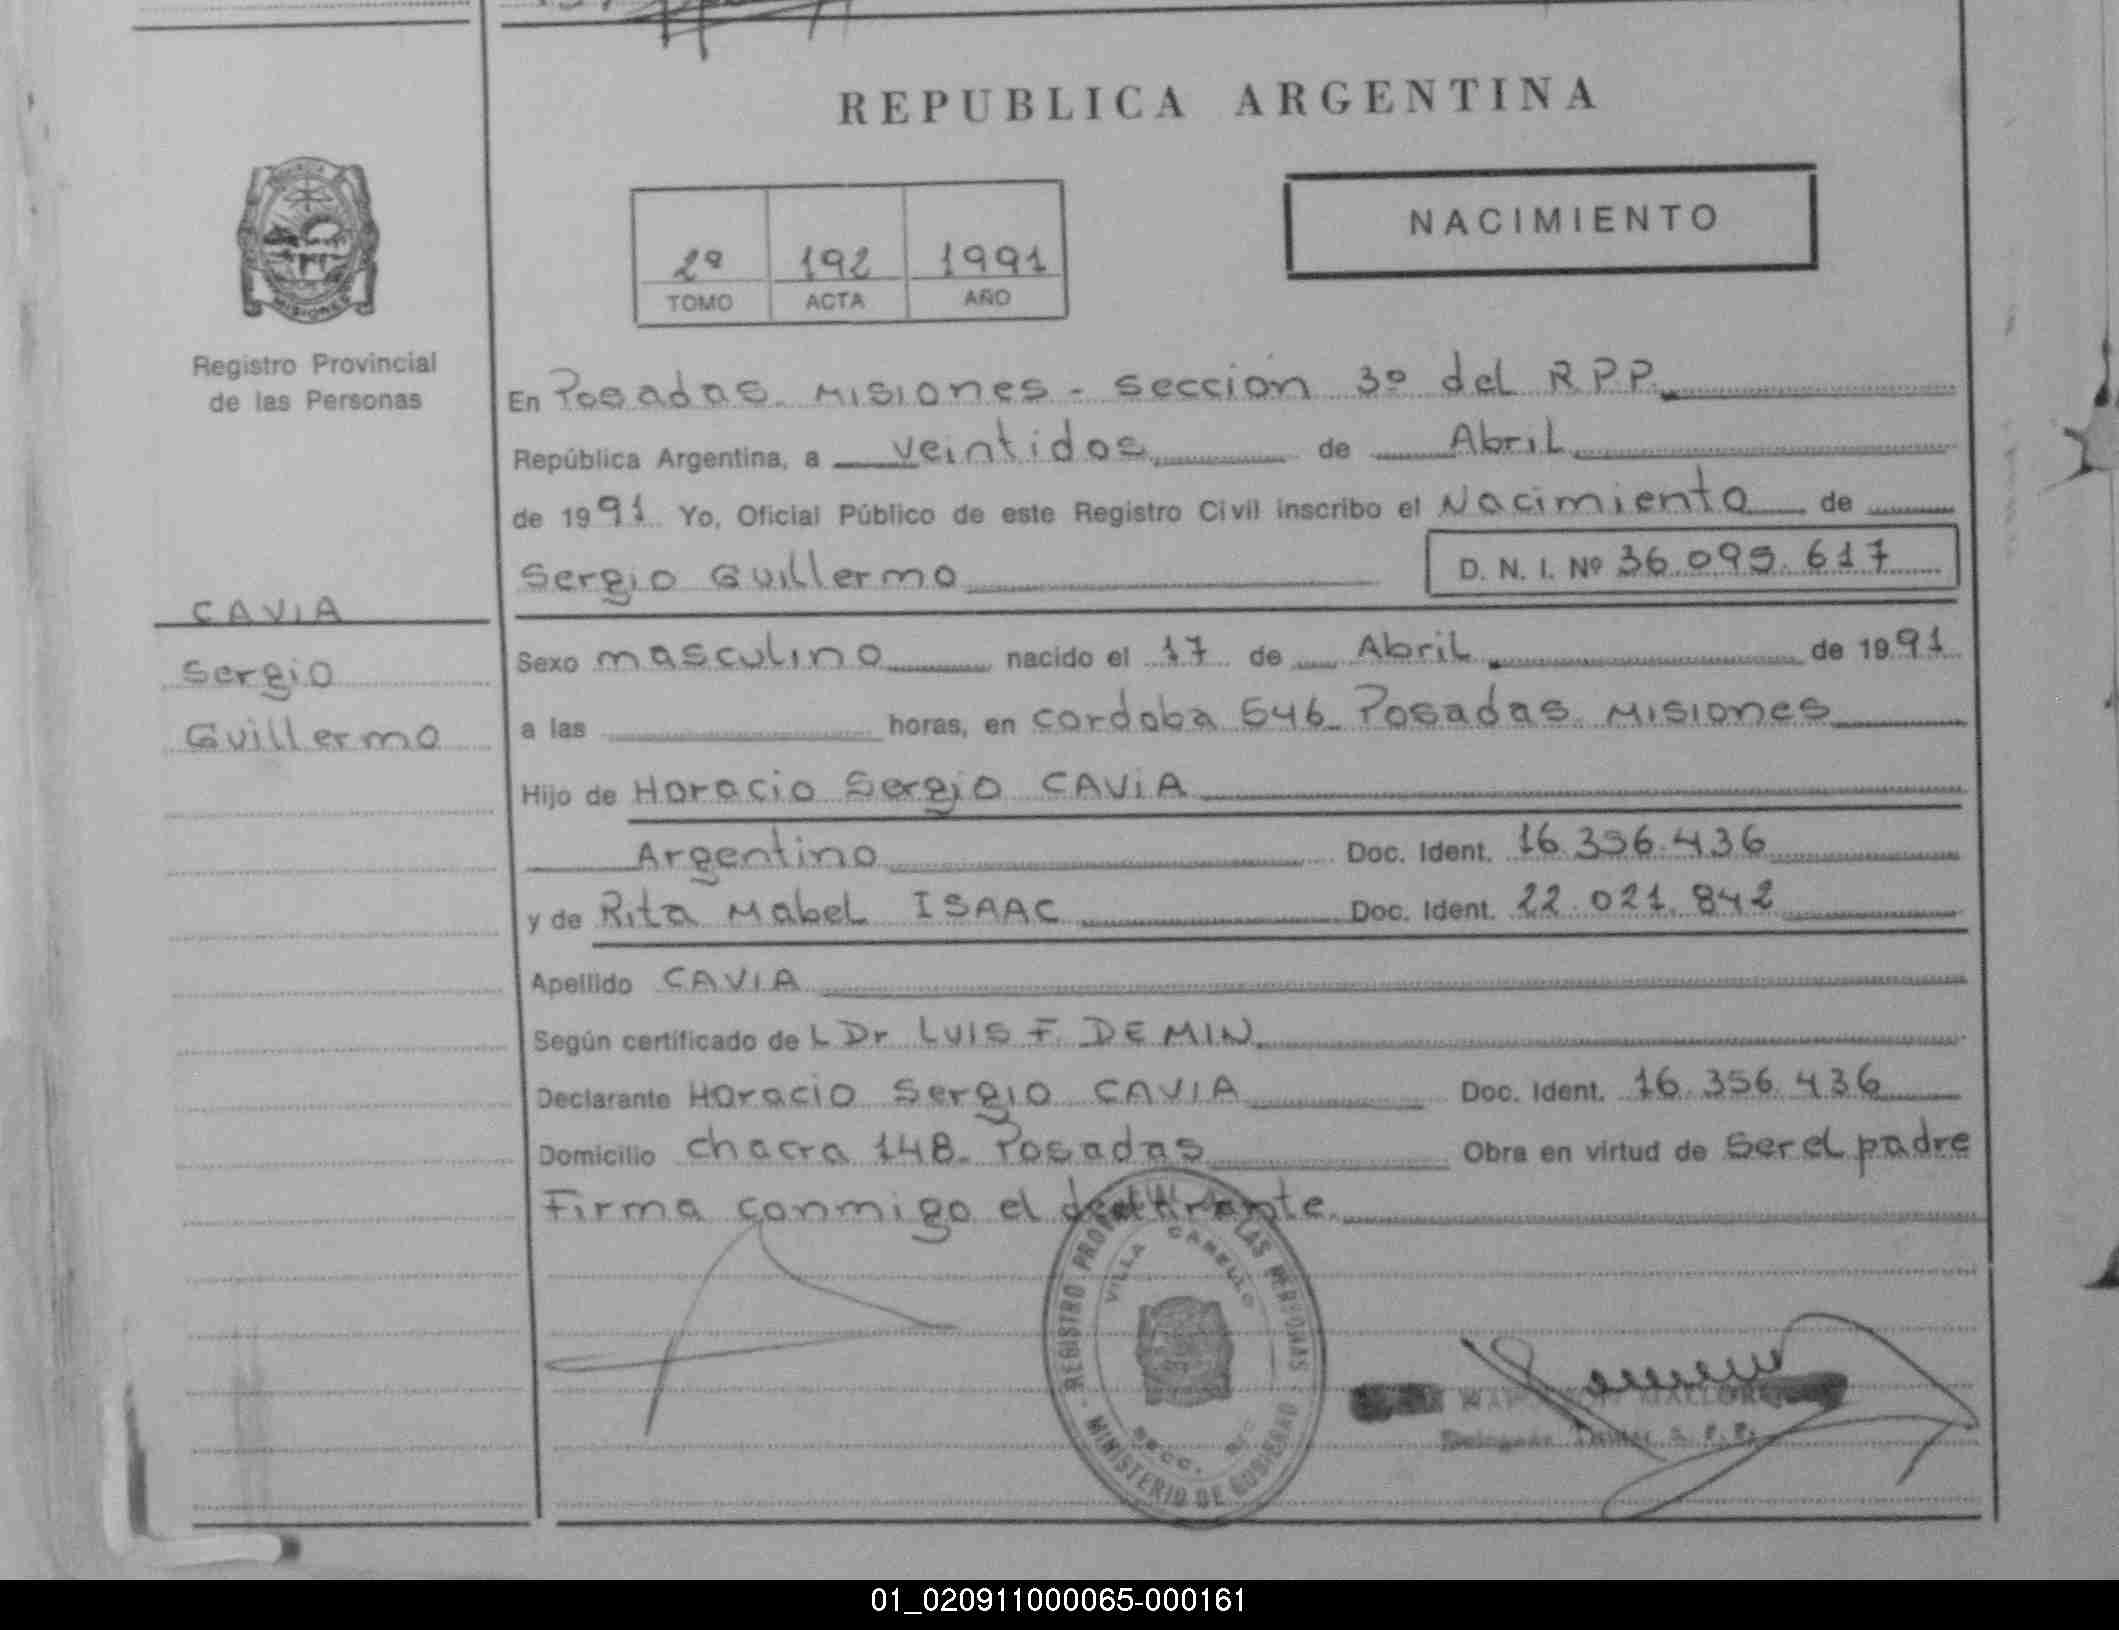 REPUBLICA ARGENTINA
NACIMIENTO
2º 192 1991
TOMO ACTA AÑO
MISIONES
Registro Provincial
de las Personas
En Posadas Misiones - Seccion 3º del R P P
República Argentina, a veintidos de Abril
de 1991 Yo, Oficial Público de este Registro Civil inscribo el Nacimiento de
Sergio Guillermo D. N. I. Nº 36.095.617
CAVIA
Sergio
Guillermo
Sexo masculino nacido el 17 de Abril de 1991
a las horas, en cordoba 546 Posadas Misiones
Hijo de Horacio Sergio CAVIA
Argentino Doc. Ident. 16.356.436
y de Rita Mabel ISAAC Doc. Ident. 22.021.842
Apellido CAVIA
Según certificado de L Dr LUIS F. DEMIN
Declarante Horacio Sergio CAVIA Doc. Ident. 16.356.436
Domicilio chacra 148. Posadas Obra en virtud de Ser el padre
Firma conmigo el declarante
REGISTRO LAS PERSONAS
VILLA CABELLO
SECC.
MINISTERIO DE GOBIERNO
01_020911000065-000161